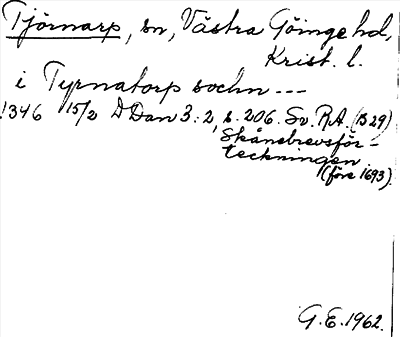 Tjörnarp, sn, Västra Göinge hd,
Krist. l.
i Tyrnatorp sochn ---
1346 15/2 D Dan 3:2, s. 206. Sv. R.A. (B 29)
Skånebrevsför-
teckningen
(före 1693).
G.E. 1962.